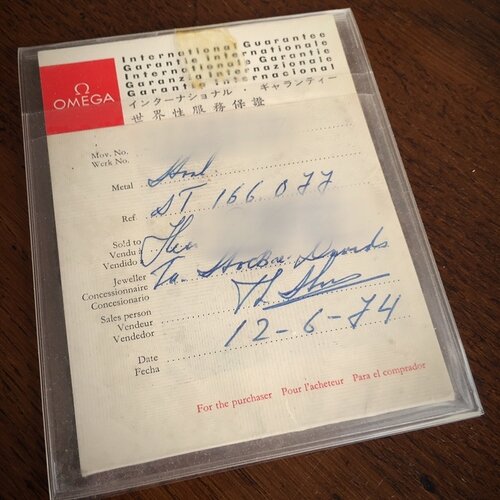 Ω
OMEGA
International Guarantee
Garantie Internationale
Internationale Garantie
Garanzia Internazionale
Garantía internacional
インターナショナル・ギャランティー
世界性服務保證
Mov. No.
Werk No.
Metal
Ref. ST 166.077
Sold to
Vendu à
Vendido a
Jeweller
Concessionnaire
Concesionario
Sales person
Vendeur
Vendedor
12-6-74
Date
Fecha
For the purchaser Pour l'acheteur Para el comprador